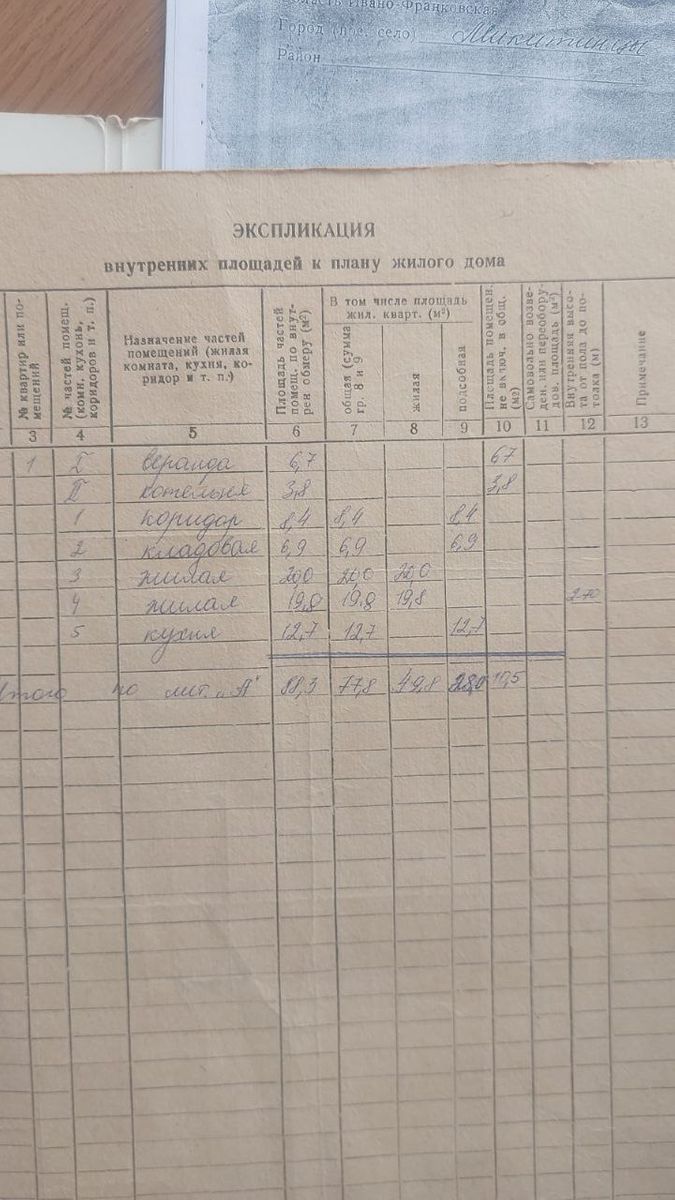 область Ивано-Франковская
Город (пос. село) Микитинцы
Район
ЭКСПЛИКАЦИЯ
внутренних площадей к плану жилого дома
№ квартир или по-
мещений
№ частей помещ.
(комн. кухонь,
коридоров и т. п.)
Назначение частей
помещений (жилая
комната, кухня, ко-
ридор и т. п.)
Площадь частей
помещ. по внут-
рен обмеру (м²)
В том числе площадь
жил. кварт. (м²)
общая (сумма
гр. 8 и 9
жилая
подсобная
Площадь помещен.
не включ. в общ.
(м2)
Самовольно возве-
ден. или переобору-
дов. площадь (м²)
Внутренняя высо-
та от пола до по-
толка (м)
Примечание
3 4 5 6 7 8 9 10 11 12 13
1 I веранда 6,7 6,7
II котельня 3,8 3,8
1 коридор 8,4 8,4 8,4
2 кладовая 6,9 6,9 6,9
3 жилая 20,0 20,0
4 жилая 19,8 19.8 19,8 2.70
5 кухня 12,7 12,7 12,7
Итого по лит. „А" 88,3 77,8 49,8 28,0 10,5